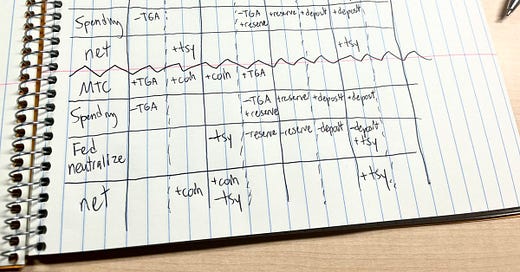 Spending -TGA -TGA +reserve +deposit +deposit
+reserve
net +tsy +tsy
MTC +TGA +coin +coin +TGA
Spending -TGA -TGA +reserve +deposit +deposit
+reserve
Fed -tsy -reserve -reserve -deposit -deposit
neutralize +tsy
net +coin +coin +tsy
-tsy